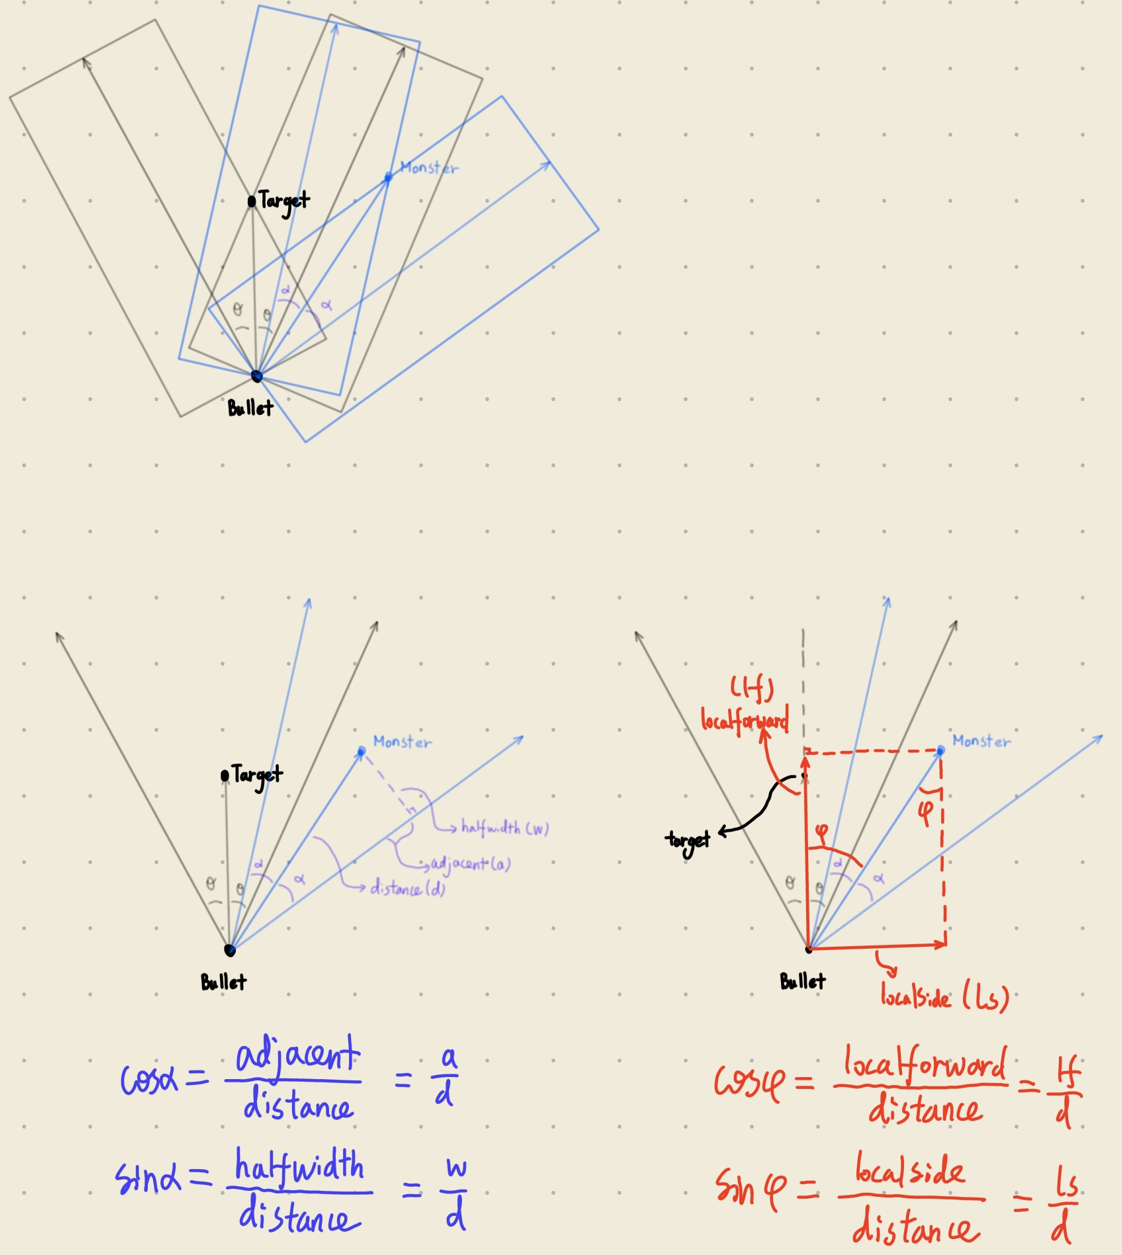 Monster
Target
α
α
θ
θ
Bullet
Monster
Target
halfwidth (w)
adjacent (a)
distance (d)
α
α
θ
θ
Bullet
(lf)
localforward
Monster
target
φ
φ
α
α
θ
θ
Bullet
localside (ls)
cosα = adjacent / distance = a / d
sinα = halfwidth / distance = w / d
cosφ = localforward / distance = lf / d
sinφ = localside / distance = ls / d